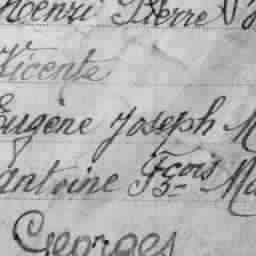 Henri Pierre
Vicente
Eugène Joseph M
Antoine Fçois
Georges